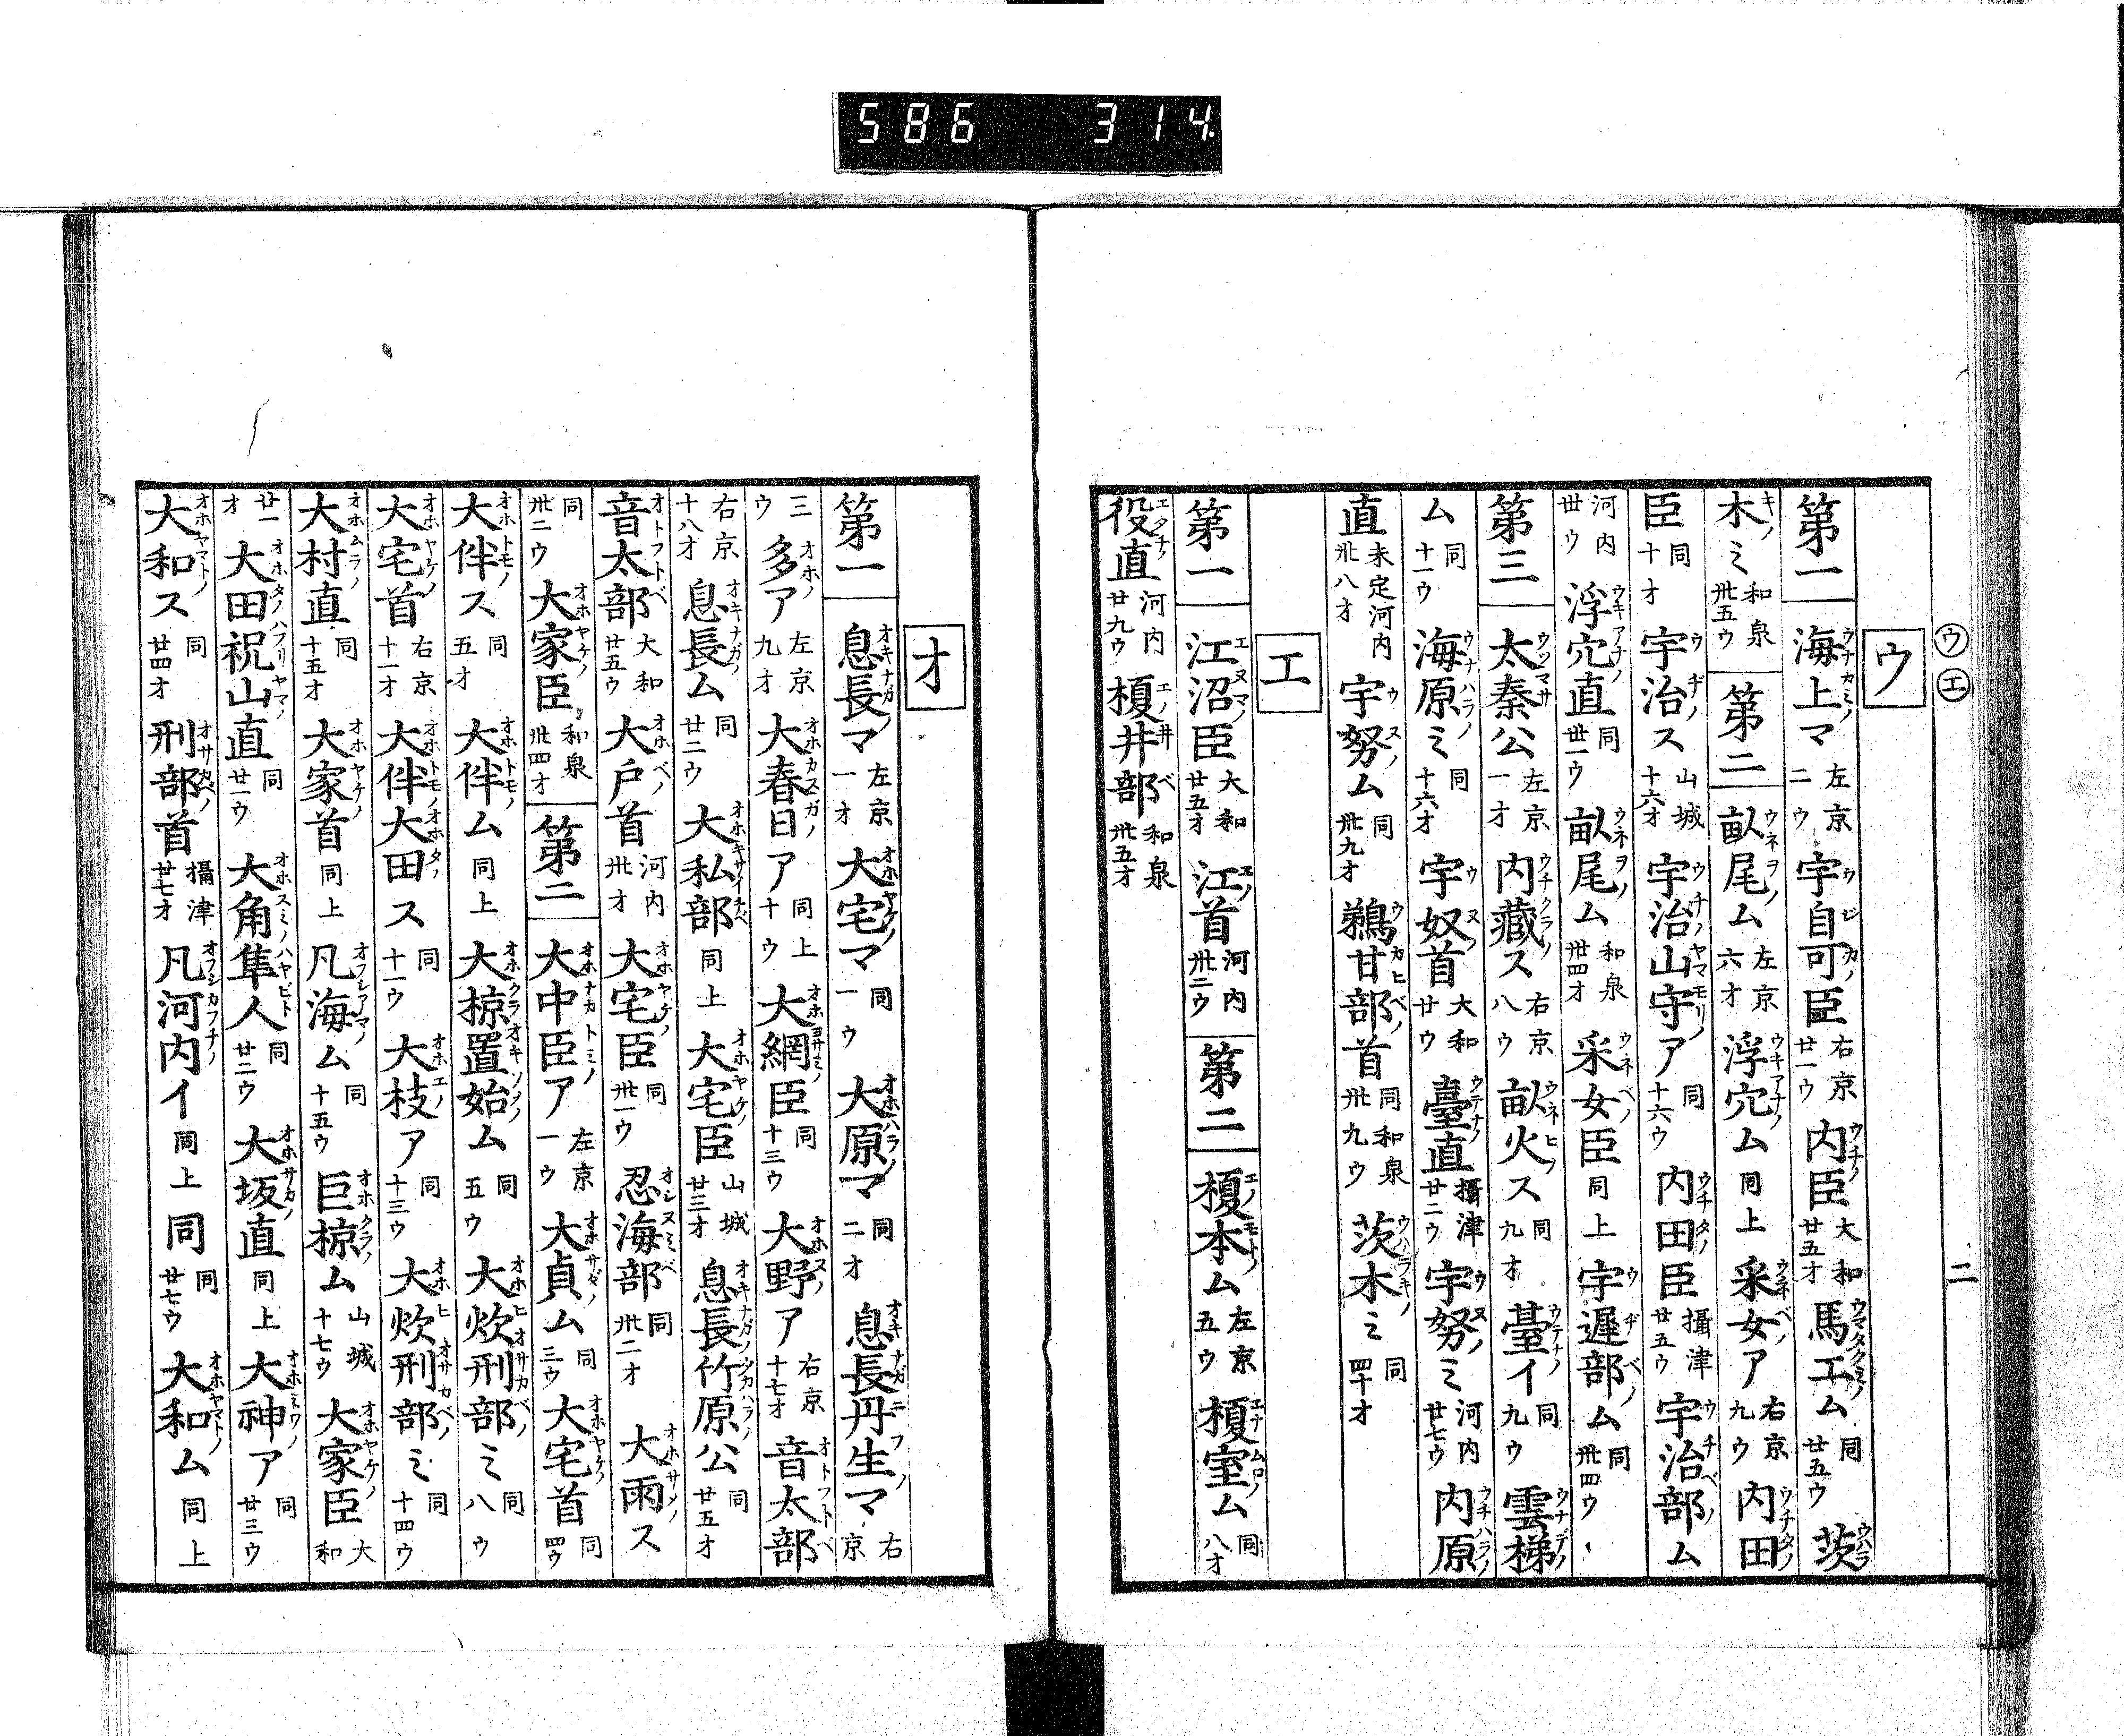 586 314.
ウ エ 二
ウ
第一 海上マ 左京二ウ 宇自可臣 右京廿一ウ 内臣 大和廿五オ 馬工ム 同廿五ウ 茨
木ミ 和泉卅五ウ 第二 畝尾ム 左京六オ 浮穴ム 同上 采女ア 右京九ウ 内田
臣 同十オ 宇治ス 山城十六オ 宇治山守ア 同十六ウ 内田臣 攝津廿五ウ 宇治部ム
河内卅ウ 浮穴直 同卅一ウ 畝尾ム 和泉卅四オ 采女臣 同上 宇遲部ム 同卅四ウ
第三 太秦公 左京一オ 内藏ス 右京八ウ 畝火ス 同九オ 臺イ 同九ウ 雲梯
ム 同十一ウ 海原ミ 同十六オ 宇奴首 大和廿ウ 臺直 攝津廿二ウ 宇努ミ 河内廿七ウ 内原
直 未定河内卅八オ 宇努ム 同卅九オ 鵜甘部首 同和泉卅九ウ 茨木ミ 同四十オ
エ
第一 江沼臣 大和廿五オ 江首 河内卅二ウ 第二 榎本ム 左京五ウ 榎室ム 同八オ
役直 河内廿九ウ 榎井部 和泉卅五オ
オ
第一 息長マ 左京一オ 大宅マ 同一ウ 大原マ 同二オ 息長丹生マ 右京
三ウ 多ア 左京九オ 大春日ア 同上十ウ 大網臣 同十三ウ 大野ア 右京十七オ 音太部
右京十八オ 息長ム 同廿二ウ 大私部 同上 大宅臣 山城廿三オ 息長竹原公 同廿五オ
音太部 大和廿五ウ 大戸首 河内卅オ 大宅臣 同卅一ウ 忍海部 同卅二オ 大雨ス
同卅二ウ 大家臣 和泉卅四オ 第二 大中臣ア 左京一ウ 大貞ム 同三ウ 大宅首 同四ウ
大伴ス 同五オ 大伴ム 同上 大椋置始ム 同五ウ 大炊刑部ミ 同八ウ
大宅首 右京十一オ 大伴大田ス 同十一ウ 大枝ア 同十三ウ 大炊刑部ミ 同十四ウ
大村直 同十五オ 大家首 同上 凡海ム 同十五ウ 巨椋ム 山城十七ウ 大家臣 大和
廿一オ 大田祝山直 同廿一ウ 大角隼人 同廿二ウ 大坂直 同上 大神ア 同廿三ウ
大和ス 同廿四オ 刑部首 攝津廿七オ 凡河内イ 同上 同 同廿七ウ 大和ム 同上